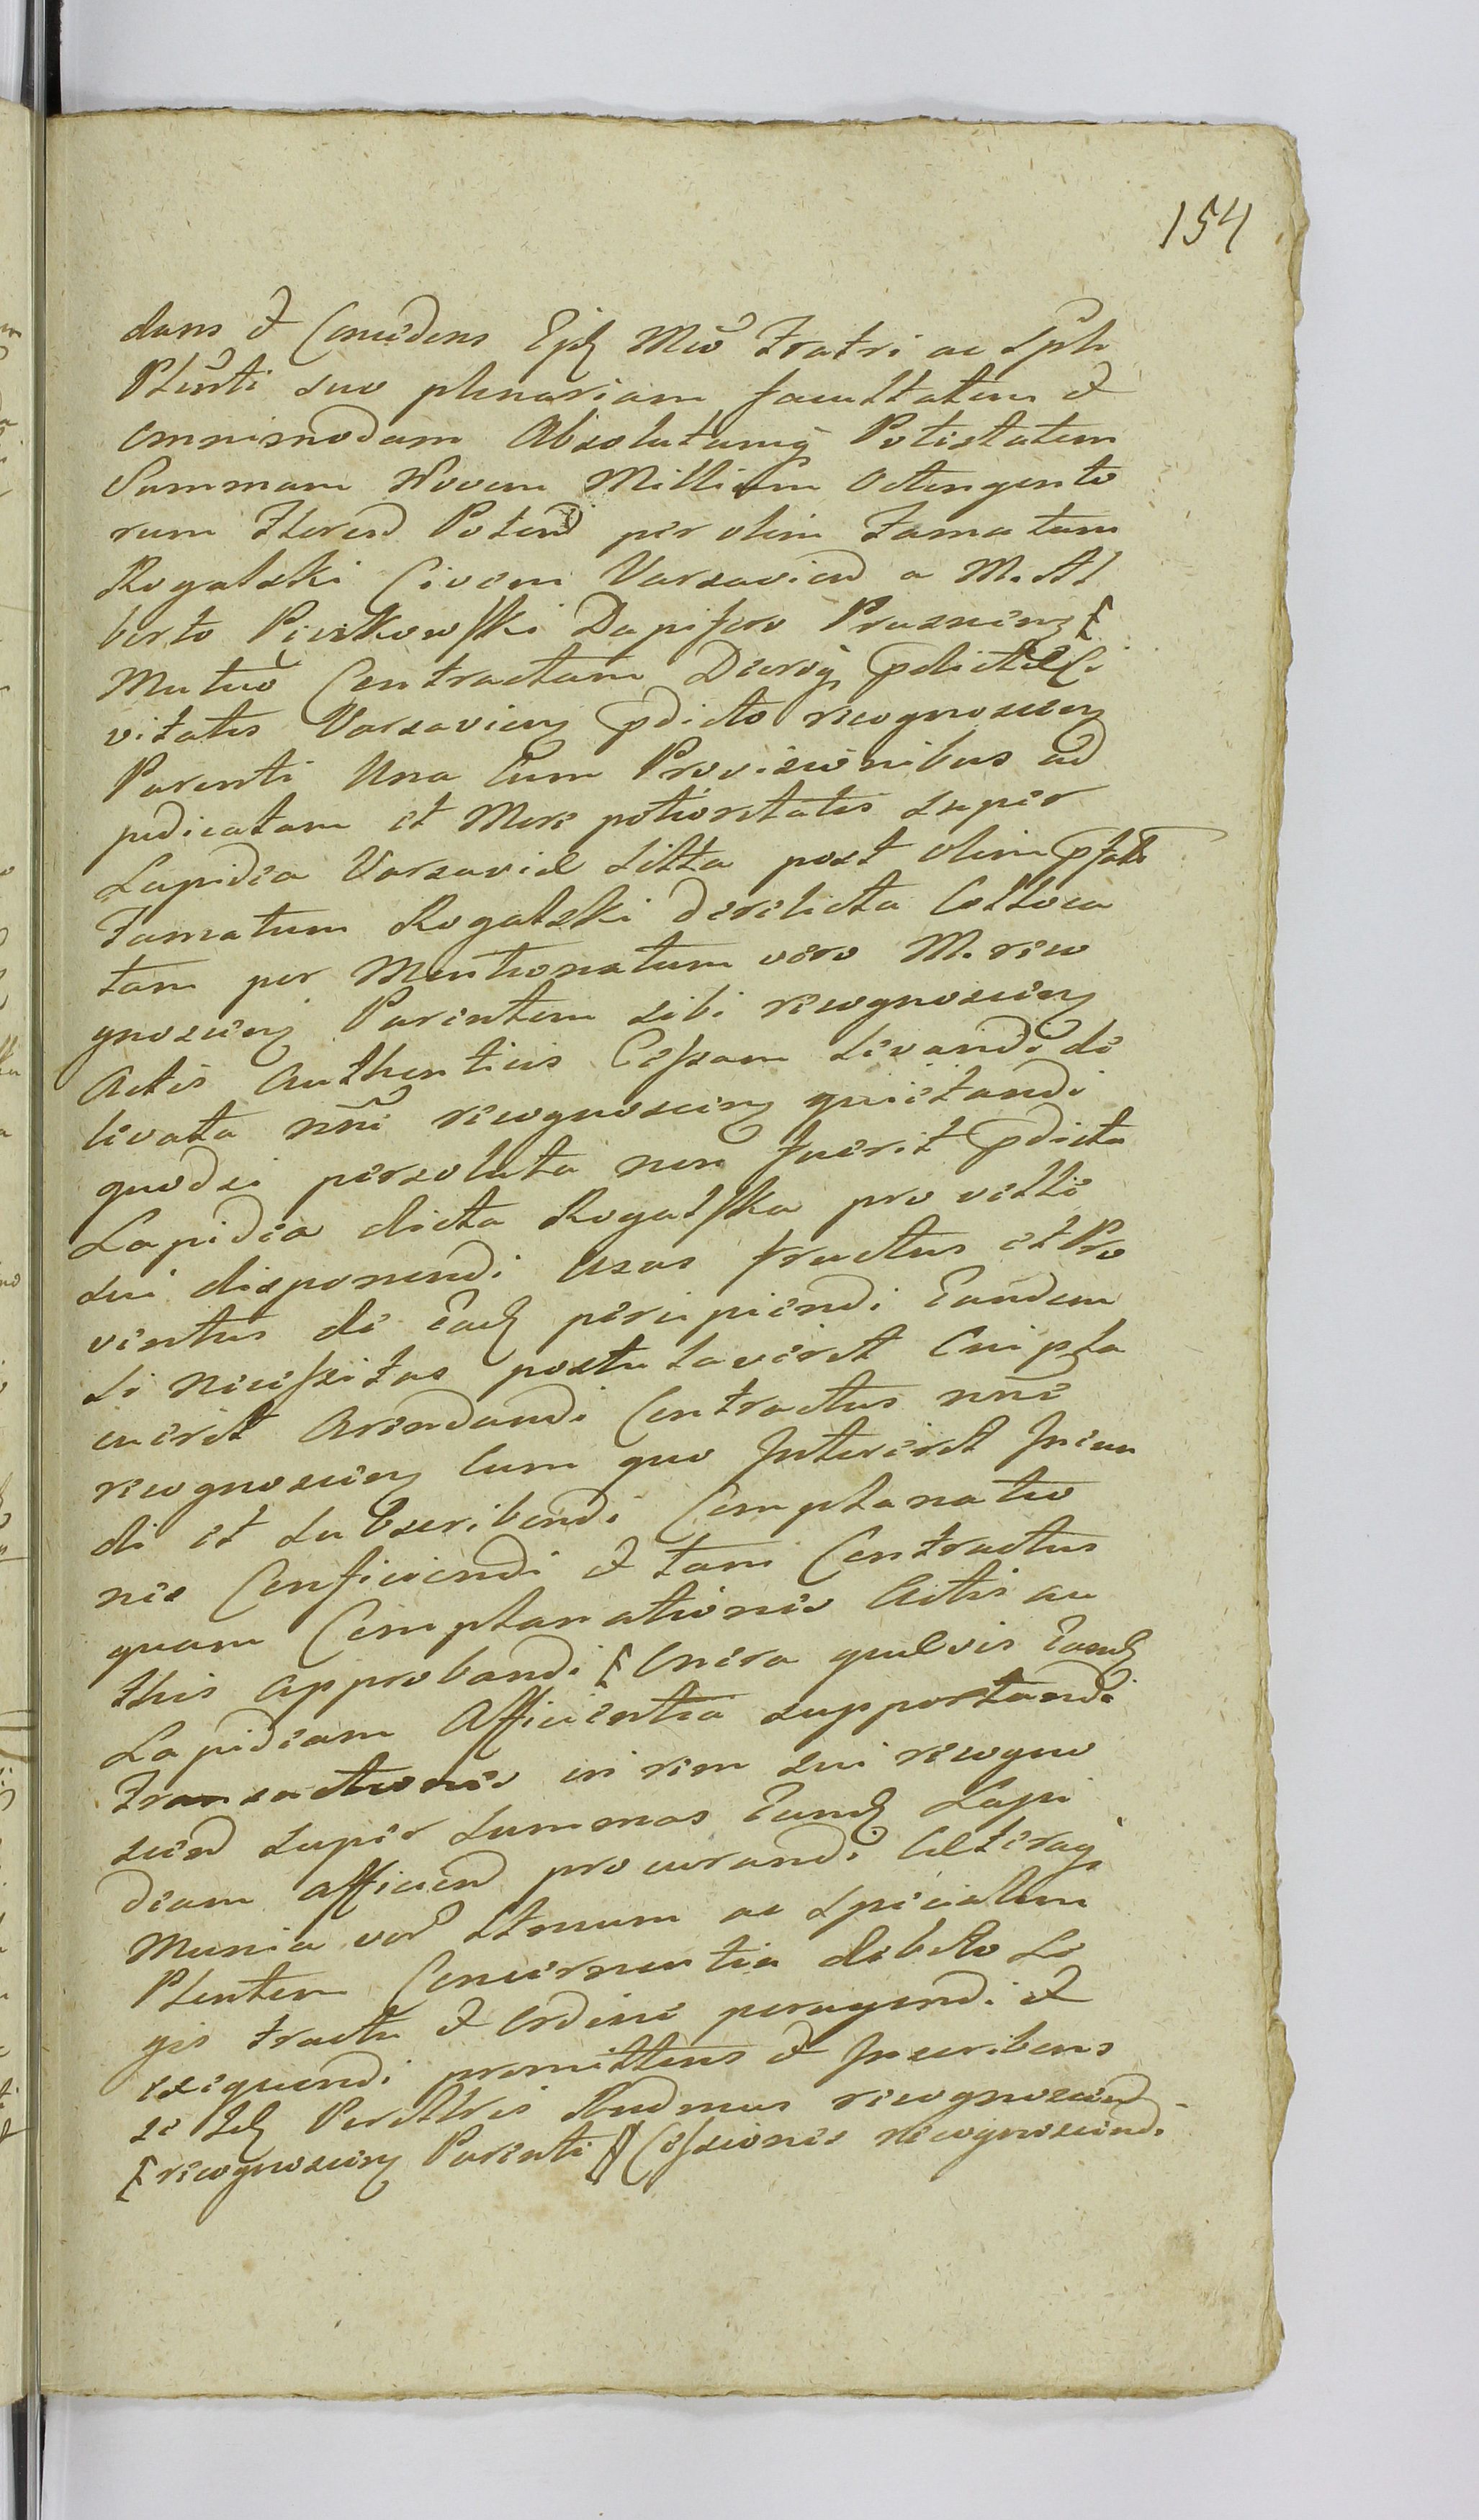 154
dans & Concedens Ejd Mco Fratri ac Spli
Plenti suo plenariam facultatem &
omnimodam Absolutamq Potestatem
Summam Novem Millium Octingento
rum Floren Polon per olim Famatum
Rogalski Civem Varsavien a M. Al
berto Pientkowski Dapifero Prasnien
Mutuo Contractam Decrog pdictae Ci
vitatis Varsavien pdicto recognoscen
Parenti Una Cum Provisionibus ad
judicatam et More potioritatis super
Lapidea Varsaviae sitta post olim pfat
Famatum Rogalski derelicta Colloca
tam per Mentionatum vero M. reco
gnoscen Parentem sibi recognoscen
Actis Authenticis Cessam Levandi de
levata nni recognoscen quietandi
quodsi persoluta non fuerit pdicta
Lapidea dicta Rogalska pro velle
sui disponendi Usus fructus et Pro
ventus de Ead percipiendi Eandem
si necessitas postulaverit Cuipla
cuerit Arendandi Contractus nne
recognoscen Cum quo Intererit Ineun
di et subscribendi Complanatio
nis Conficiendi & tam Contractus
quam Complanationis Actis au
this Approbandi Onera quaevis Eand
Lapideam Afficientia supportandi
Transactionis in rem sui recogno
scen super summas Eand Lapi
deam afficien procurandi Caeteraq
Munia ad ac specialem
Plentem Concernentia debito Le
gis tractu & Ordine peragendi &
exequendi promittens & Inscribens
se recognoscen
recognoscen Parenti Cessionis recognoscendi